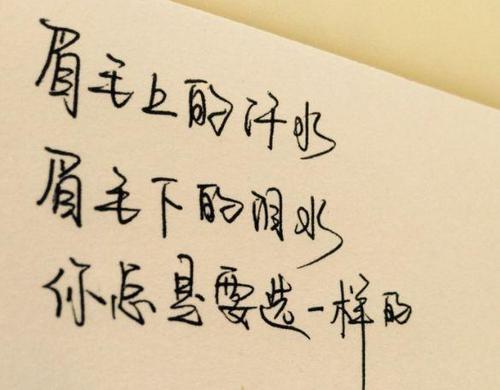 眉毛上的汗水
眉毛下的泪水
你总是要选一样的